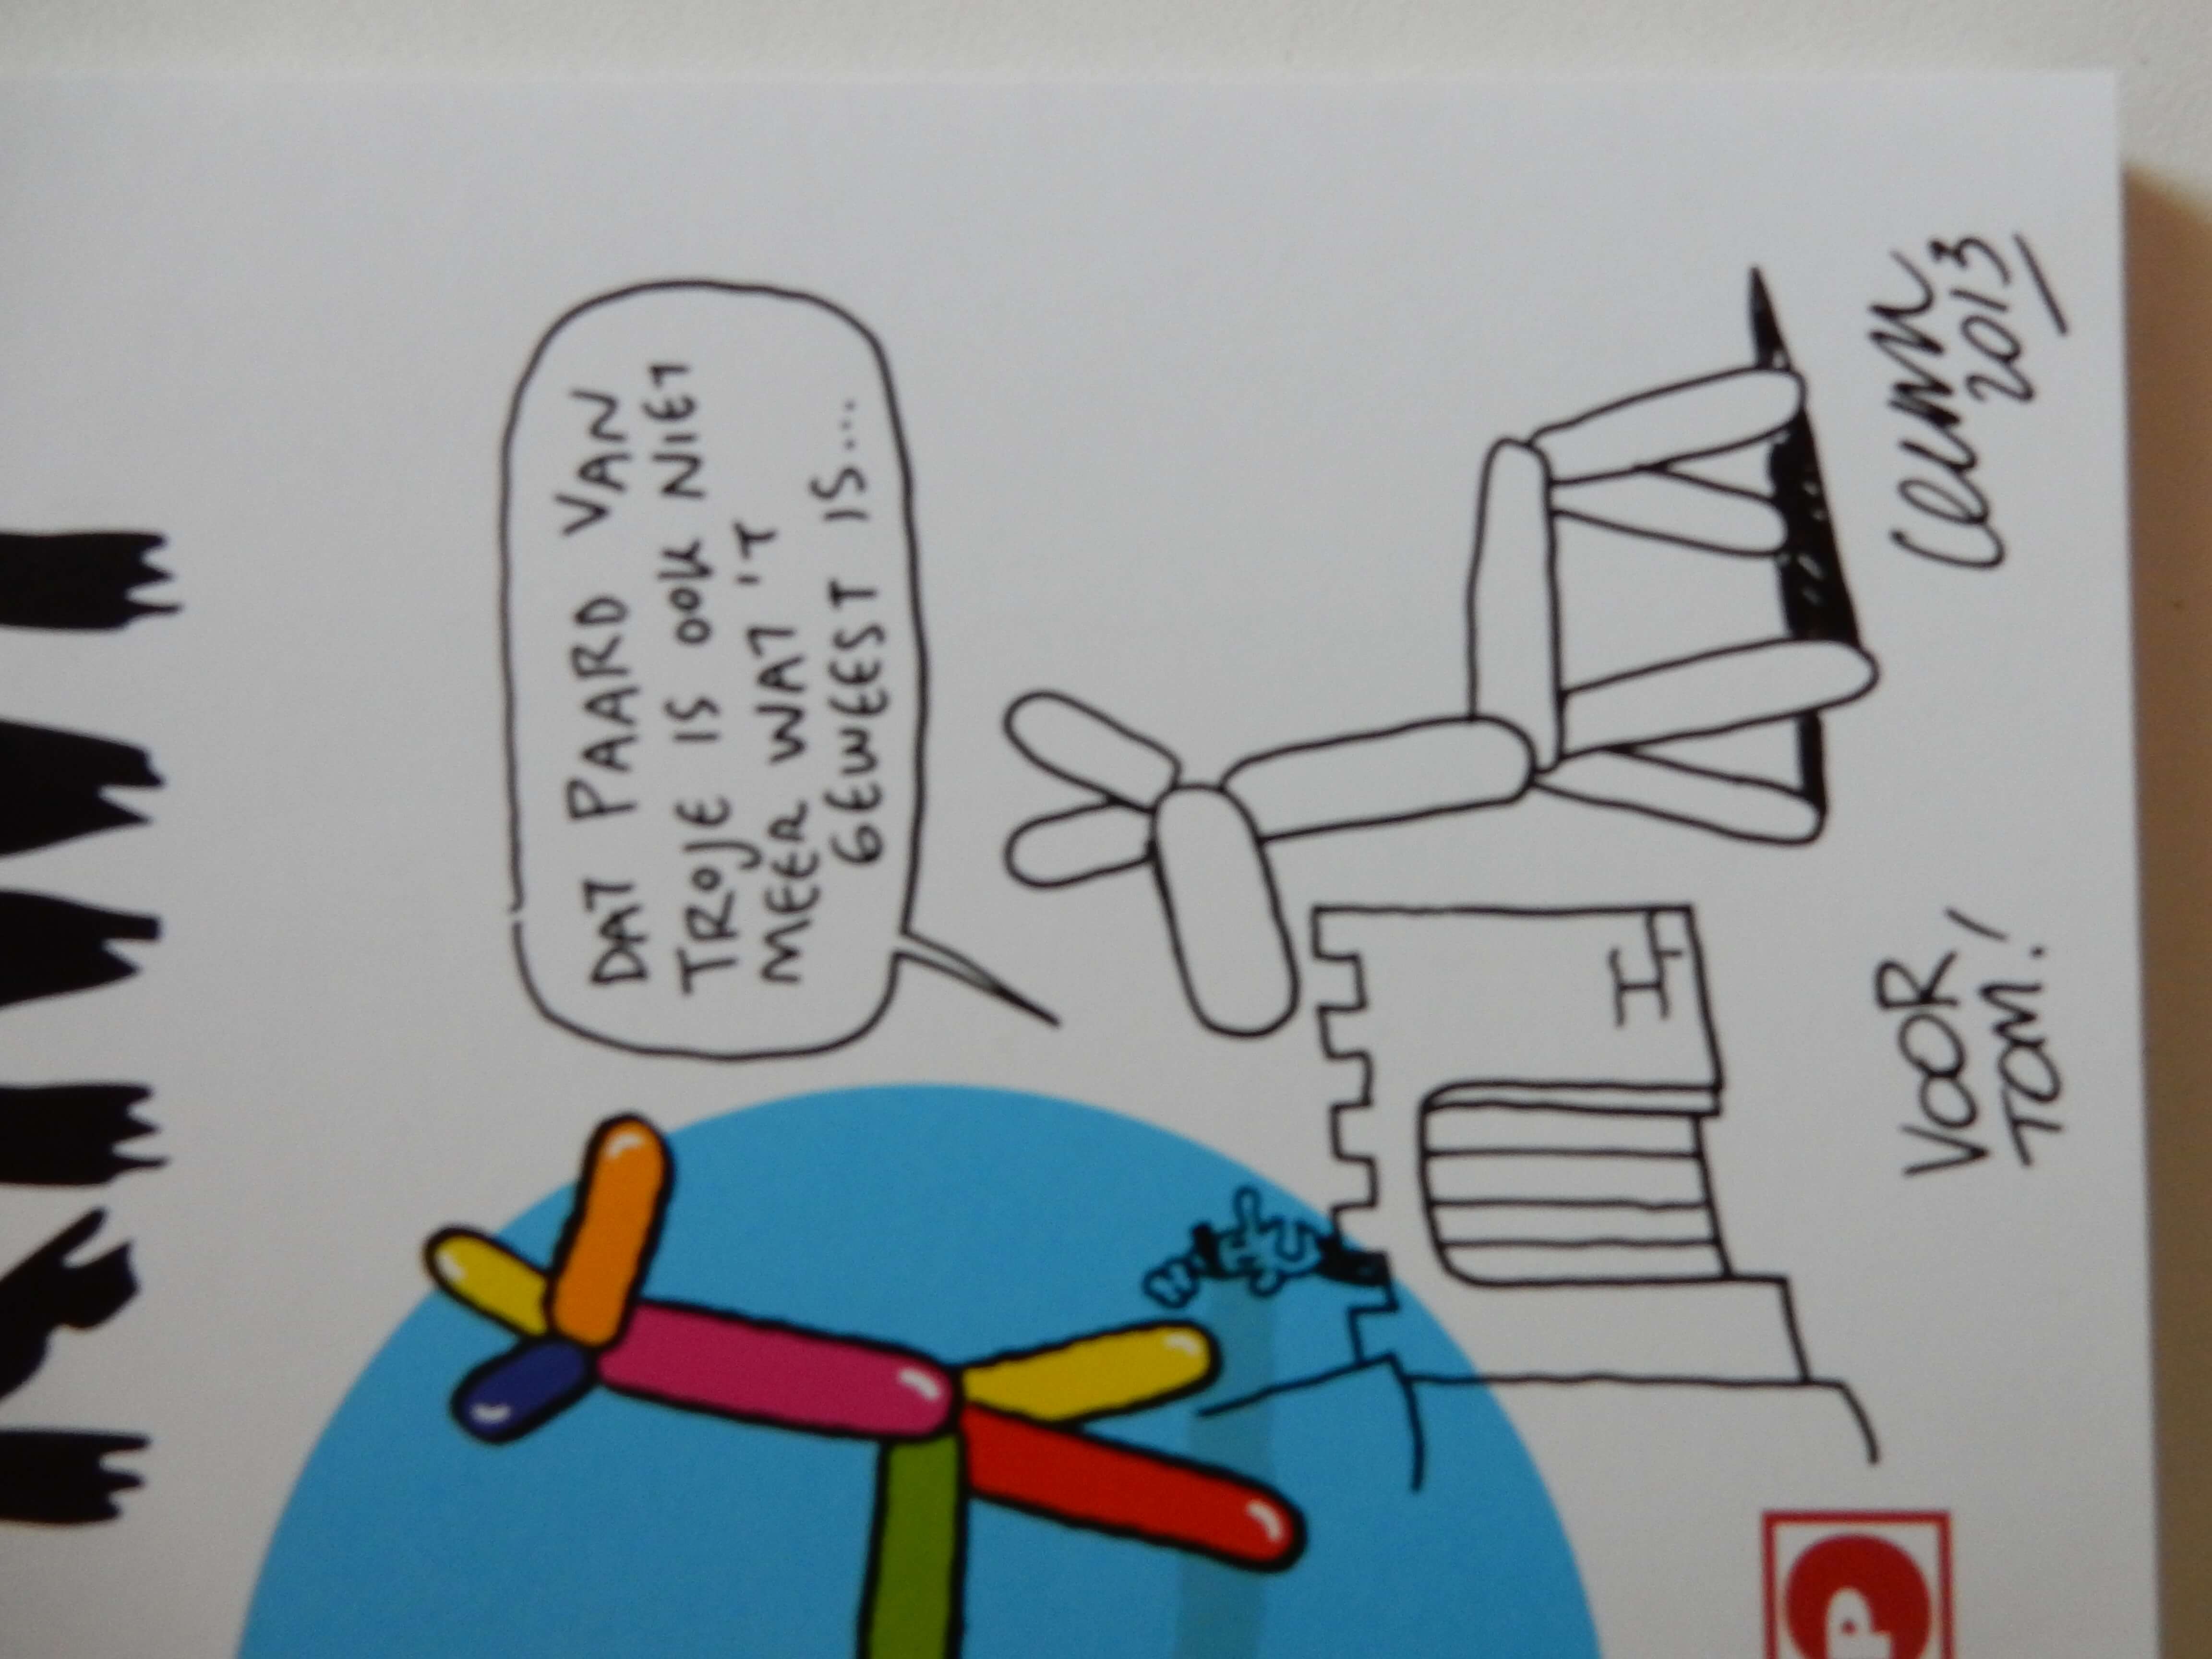 KIWI
DAT PAARD VAN
TROJE IS OOK NIET
MEER WAT 'T
GEWEEST IS...
P
VOOR
TOM!
2013